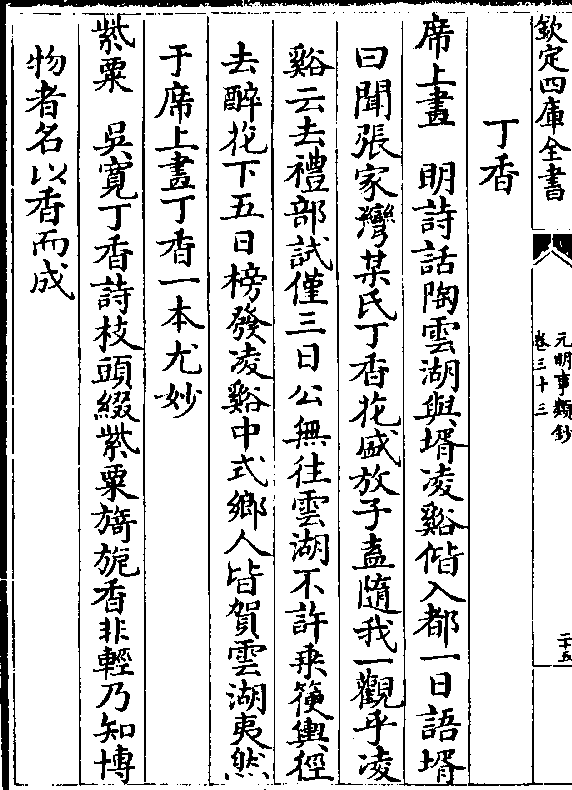 欽定四庫全書
元明事類鈔
卷三十三
二十五
丁香
席上畫　明詩話陶雲湖與壻凌谿偕入都一日語壻
曰聞張家灣某氏丁香花盛放子盍隨我一觀乎凌
谿云去禮部試僅三日公無往雲湖不許乘箯輿徑
去醉花下五日榜發凌谿中式鄉人皆賀雲湖夷然
于席上畫丁香一本尤妙
紫粟　吳寛丁香詩枝頭綴紫粟旖旎香非輕乃知博
物者名以香而成